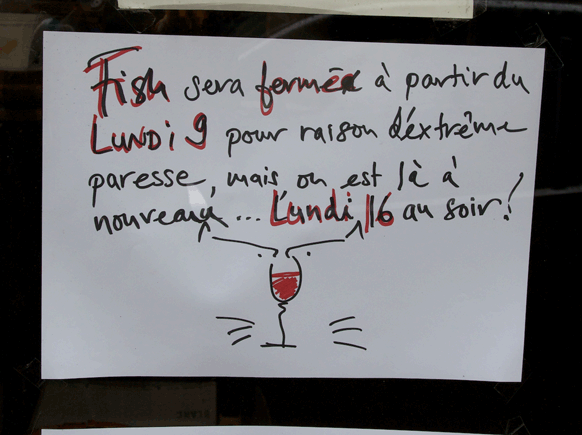 Fish sera fermé à partir du
Lundi 9 pour raison d'éxtrême
paresse, mais on est là à
nouveau ... Lundi 16 au soir!
BLANC